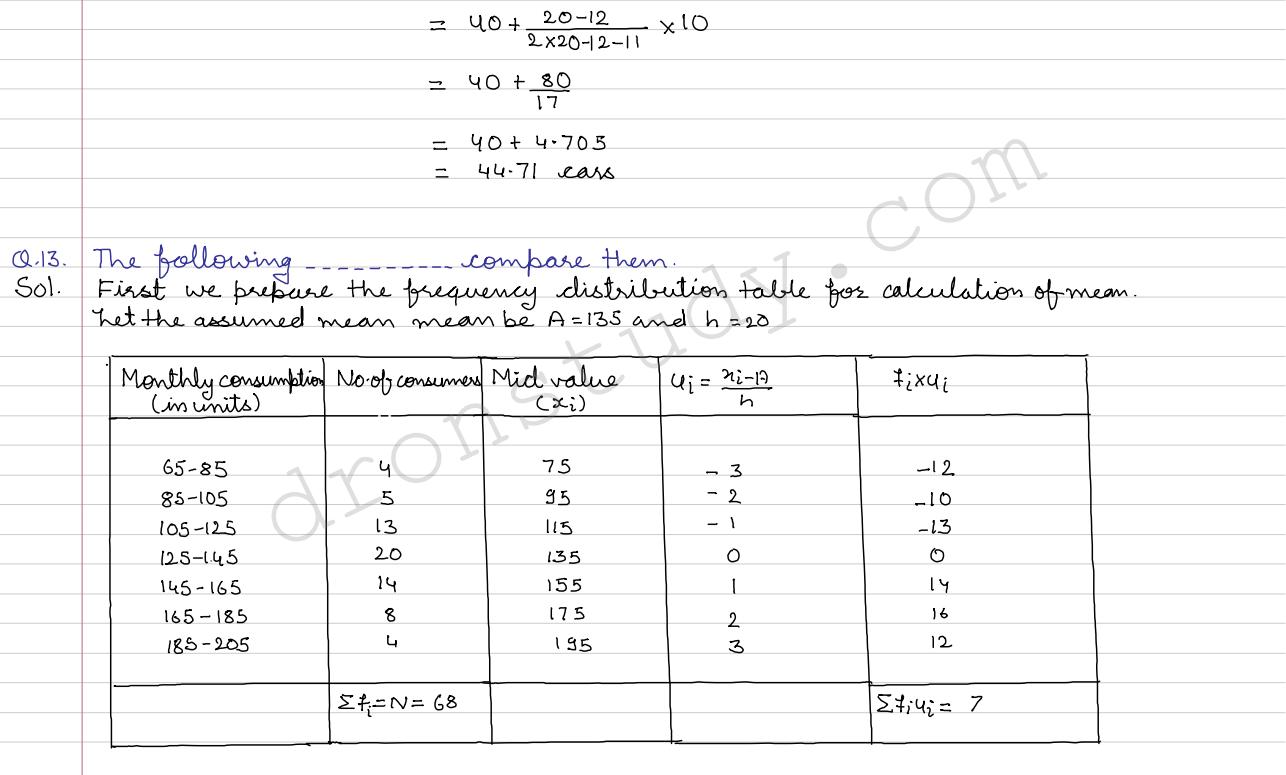 = 40 + 20-12 / 2×20-12-11 ×10
= 40 + 80/17
= 40 + 4.705
= 44.71 cars
Q.13. The following ---------- compare them.
Sol. First we prepare the frequency distribution table for calculation of mean.
Let the assumed mean mean be A = 135 and h = 20
Monthly consumption (in units) No. of consumers Mid value (xi) ui = xi-A / h fi×ui
65-85 4 75 -3 -12
85-105 5 95 -2 -10
105-125 13 115 -1 -13
125-145 20 135 0 0
145-165 14 155 1 14
165-185 8 175 2 16
185-205 4 195 3 12
Σfi = N = 68 Σfiui = 7
dronstudy.com